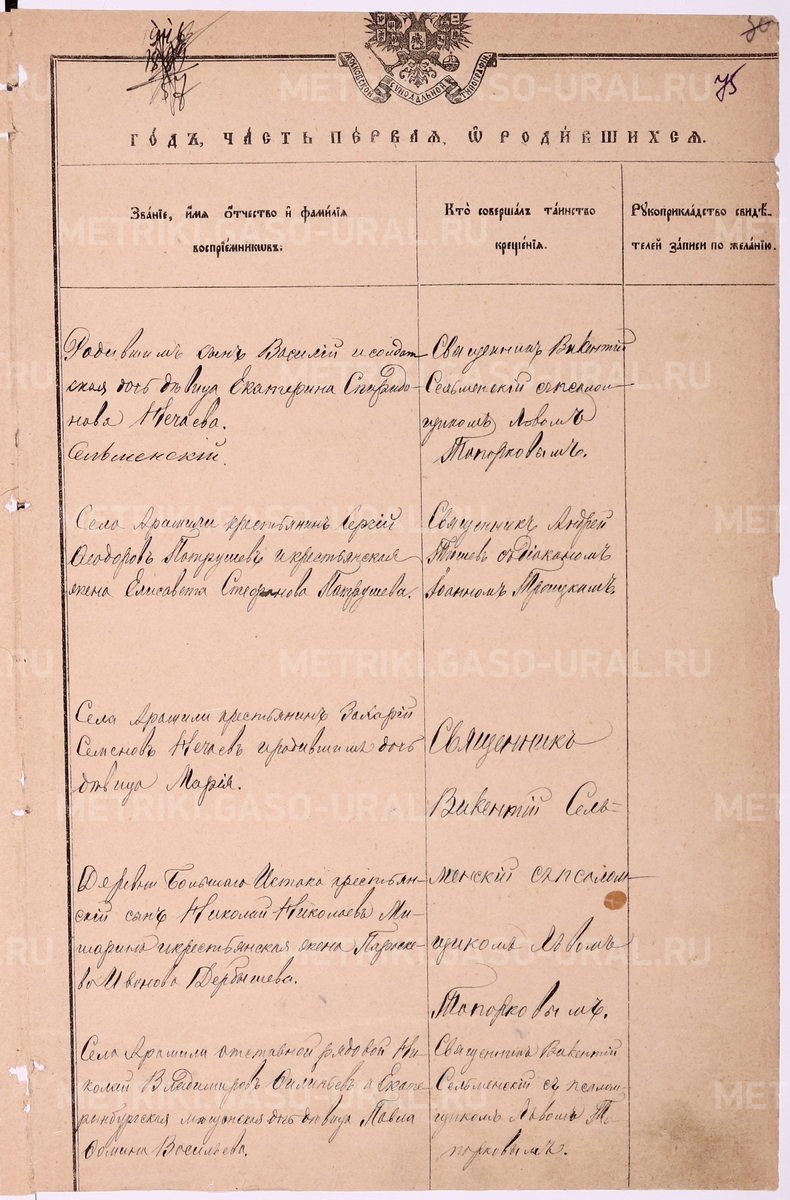 75
МОСКОВСКОЙ СѴНОДАЛЬНОЙ ТИПОГРАФІИ
ГО́ДЪ, ЧА́СТЬ ПЕ́РВАЯ, Ѡ҆ РОДИ́ВШИХСЯ.
Зва́нїе, и҆́мя ѻ҆́тчество и҆ фами́лїя
воспрїе́мникѡвъ.
Кто̀ соверша́лъ та́инство
креще́нїя.
Рꙋкоприкла́дство свидѣ́-
телей за́писи по жела́нїю.
Родившимъ сынъ Василій и солдат-
ская дочь дѣвица Екатерина Спиридо-
нова Нечаева.
Сельменскій.
Священникъ Викентій
Сельменскій съ псалом-
щикомъ Львомъ
Топорковымъ.
Села Арамили крестьянинъ Сергій
Ѳеодоровъ Патрушевъ и крестьянская
жена Елисавета Стефанова Патрушева.
Священникъ Андрей
съ діакономъ
Іоанномъ Троицкимъ
Села Арамили крестьянинъ Захарій
Семеновъ Нечаевъ и родившимъ дочь
дѣвица Марія.
Священникъ
Викентій Сель-
менскій съ псалом-
щикомъ Львомъ
Топорковымъ.
Деревни Большаго Истока крестьян-
скій сынъ Николай Николаевъ Ми-
шаринъ и крестьянская жена Параске-
ва Иванова Дербышева.
Села Арамили отставной рядовой Ни-
колай Владимировъ и Екате-
ринбургская мѣщанская дочь дѣвица Павла
Ѳомина Васильева.
Священникъ Викентій
Сельменскій съ псалом-
щикомъ Львомъ То-
порковымъ.
METRIKI.GASO-URAL.RU